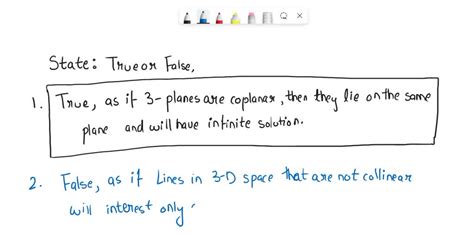 State: True or False,
1. True, as if 3-planes are coplanar, then they lie on the same
plane and will have infinite solution.
2. False, as if Lines in 3-D space that are not collinear
will interest only